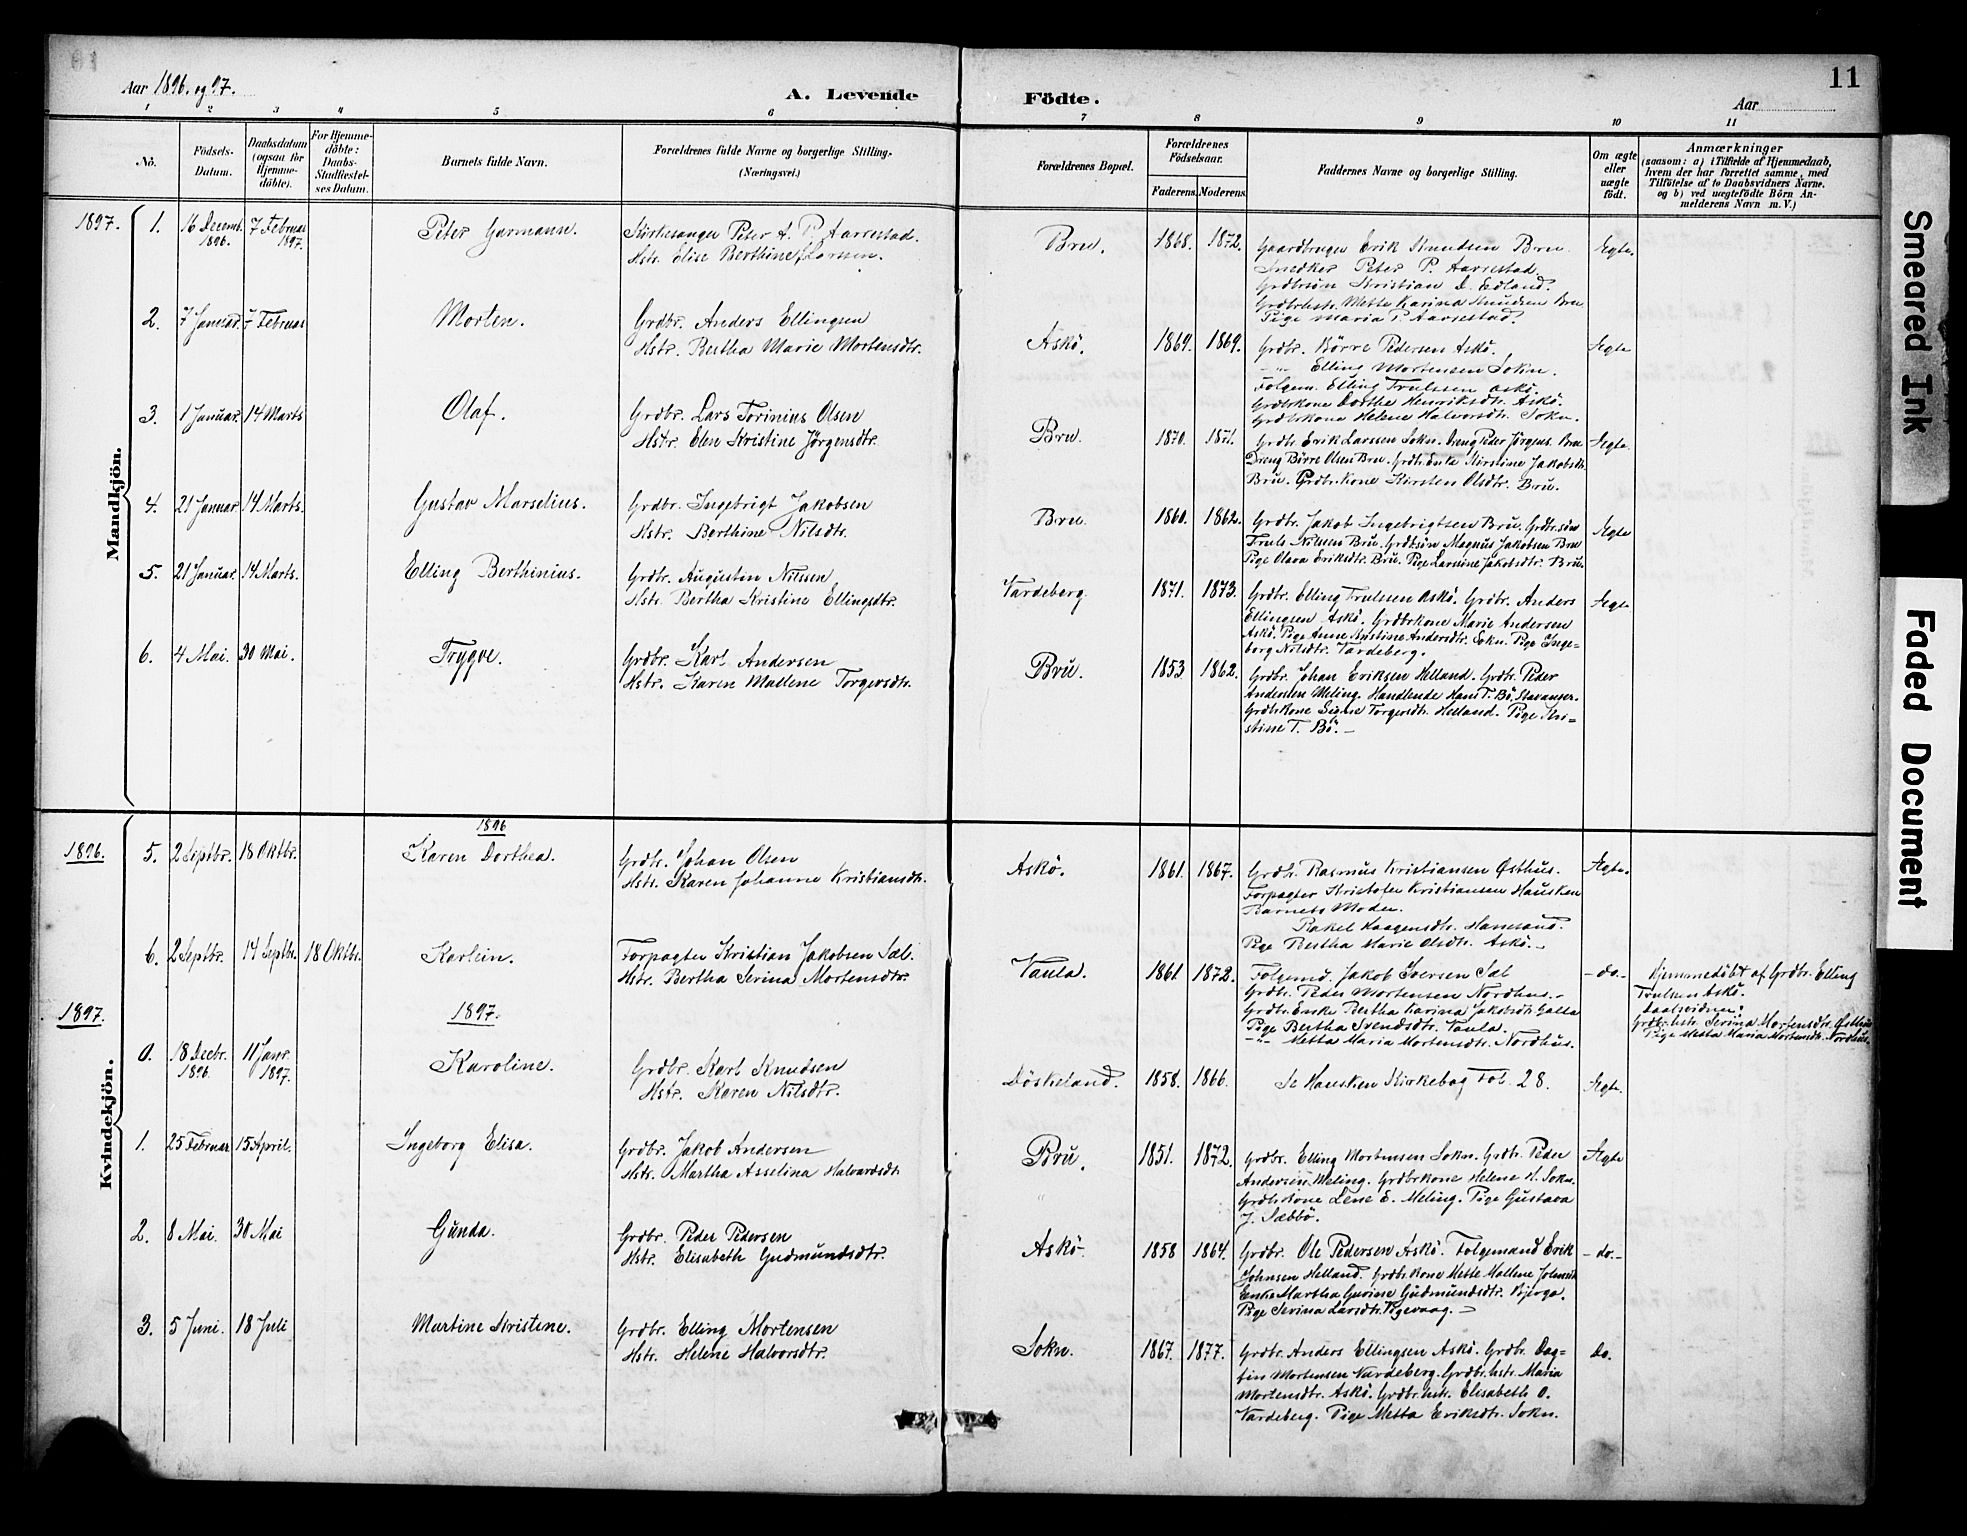 11
Aar 1896. og 97.
A. Levende Födte.
Aar
1 2 3 4 5 6 7 8 9 10 11
No.
Födsels-Datum.
Daabsdatum (ogsaa for Hjemmedöbte).
For Hjemmedöbte: Daabs-Stadfæstelses Datum.
Barnets fulde Navn.
Forældrenes fulde Navne og borgerlige Stilling. (Næringsvei.)
Forældrenes Bopæl.
Forældrenes Födselsaar.
Faderens. Moderens.
Faddernes Navne og borgerlige Stilling.
Om ægte eller uægte födt.
Anmærkninger
(saasom: a) i Tilfælde af Hjemmedaab,
hvem der har forrettet samme, med
Tilföielse af to Daabsvidners Navne,
og b) ved uægtefödte Börn Anmelderens Navn m. V.)
Mandkjön.
1897. 1. 16 Decemb. 1896. 7 Februar 1897. Peter Garmann.
Kirkesanger Peter A. P. Aarrestad.
Hstr. Elise Berthine Larsen.
Bru. 1868. 1872.
Gaardbruger Erik Knudsen Bru.
Snedker Peter P. Aarrestad.
Grdbrsön Kristian D. Edland.
Grdbrhstr. Mette Karina Knudsen Bru
Pige Maria P. Aarrestad.
Ægte.
2. 7 Januar. 7 Februar Morten.
Grdbr. Anders Ellingsen
Hstr. Bertha Marie Mortensdtr.
Askö. 1869. 1869.
Grdbr. Börre Pedersen Askö.
-"- Elling Mortensen Sokn.
Folgem. Elling Trulssen Askö.
Grdbrkone Dorthe Henriksdtr. Askö.
Grdbrkone Helene Halvorsdtr. Sokn.
Ægte
3. 1 Januar. 14 Marts Olaf.
Grdbr. Lars Torinius Olsen
Hstr. Elen Kristine Jörgensdtr.
Bru. 1870. 1871.
Grdbr. Erik Larssen Sokn. Dreng Peder Jörgens. Bru
Dreng Börre Olsen Bru. Grdbr. Enke Kirstine Jakobsdtr.
Bru. Grdbr. Kone Kirsten Olsdtr. Bru.
Ægte.
4. 21 Januar 14 Marts. Gustav Marselius.
Grdbr. Ingebrigt Jakobsen
Hstr. Berthine Nilsdtr.
Bru. 1860. 1862.
Grdbr. Jakob Ingebrigtsen Bru. Grdbr. sön
Truls Nilssen Bru. Grdbrsön Magnus Jakobsen Bru
Pige Olava Eriksdtr. Bru. Pige Larsine Jakobsdtr. Bru.
Ægte
5. 21 Januar. 14 Marts. Elling Berthinius.
Grdbr. Augustin Nilssen
Hstr. Bertha Kristine Ellingsdtr.
Vardeberg 1871. 1873.
Grdbr. Elling Trulssen Askö. Grdbr. Anders
Ellingsen Askö. Grdbrkone Marie Andersen
Askö. Pige Anne Kristine Andersdtr. Sokn. Pige Inge=
borg Nilsdtr. Vardeberg.
Ægte
6. 4 Mai. 30 Mai. Trygve.
Grdbr. Karl Andersen
Hstr. Karen Mallene Torgersdtr.
Bru. 1853 1862.
Grdbr. Johan Eriksen Helland. Grdbr. Peder
Andersen Meling. Handlende Hans T. Bö, Stavanger.
Grdbrkone Signe Torgersdtr. Helland. Pige Kri=
stine T. Bö.—
Kvindekjön.
1896
1896. 5. 2 Septbr. 18 Oktbr. Karen Dorthea.
Grdbr. Johan Olsen
Hstr. Karen Johanne Kristiansdtr.
Askö. 1861. 1867.
Grdbr. Rasmus Kristiansen Østhus.
Forpagter Kristofer Kristiansen Hausken
Barnets Moder.
Rakel Haagensdtr. Hanesand.
Pige Bertha Marie Olsdtr. Askö.—
Ægte.
6. 2 Septbr. 14 Septbr. 18 Oktbr. Karlein.
Forpagter Kristian Jakobsen Sal.
Hstr. Bertha Serina Mortensdtr.
Vaula. 1861 1872.
Folgemd. Jakob Iversen Sal
Grdbr. Peder Mortensen Nordhus.—
Grdbr. Enke Bertha Karina Jakobsdtr. Galta
Pige Bertha Svendsdtr. Vaula.
-"- Metta Maria Mortensdtr. Nordhus.
-do.-
Hjemmedöbt af Grdbr. Elling
Trulsen Askö.
Daabsvidner:
Grdbr. hstr. Serina Mortensdtr. Østhus
Pige Metta Maria Mortensdtr. Nordhus.
1897. 1897.
0. 18 Decbr. 1896. 11 Janr. 1897. Karoline.
Grdbr. Karl Knudsen
Hstr. Karen Nilsdtr.
Döskeland. 1858. 1866.
Se Hausken Kirkebog Fol. 28.
Ægte.
1. 25 Februar 15 April. Ingeborg Elisa.
Grdbr. Jakob Andersen
Hstr. Martha Asselina Halvardsdtr.
Bru. 1851. 1872.
Grdbr. Elling Mortensen Sokn. Grdbr. Peder
Andersen Meling. Grdbrkone Helene H. Sokn.
Grdbrkone Lene E. Meling. Pige Gustava
J. Sæbbö.
Ægte
2. 8 Mai. 30 Mai Gunda.
Grdbr. Peder Pedersen
Hstr. Elisabeth Gudmundsdtr.
Askö. 1858 1864.
Grdbr. Ole Pedersen Askö. Folgemand Erik
Johnsen Helland. Grdbrkone Mette Mallene
Enke Martha Gurine Gudmundsdtr. Bjergo.
Pige Serina Larsdtr.
-do.-
3. 5 Juni. 18 Juli Martine Kristine.
Grdbr. Elling Mortensen
Hstr. Helene Halvorsdtr.
Sokn. 1867. 1877.
Grdbr. Anders Ellingsen Askö. Grdbr. Dag=
fin Mortensen Vardeberg. Grdbr. hstr. Maria
Mortensdtr. Askö. Grdbr. hstr. Elisabeth O.
Vardeberg. Pige Metta Eriksdtr. Sokn.
do.
Smeared Ink
Faded Document